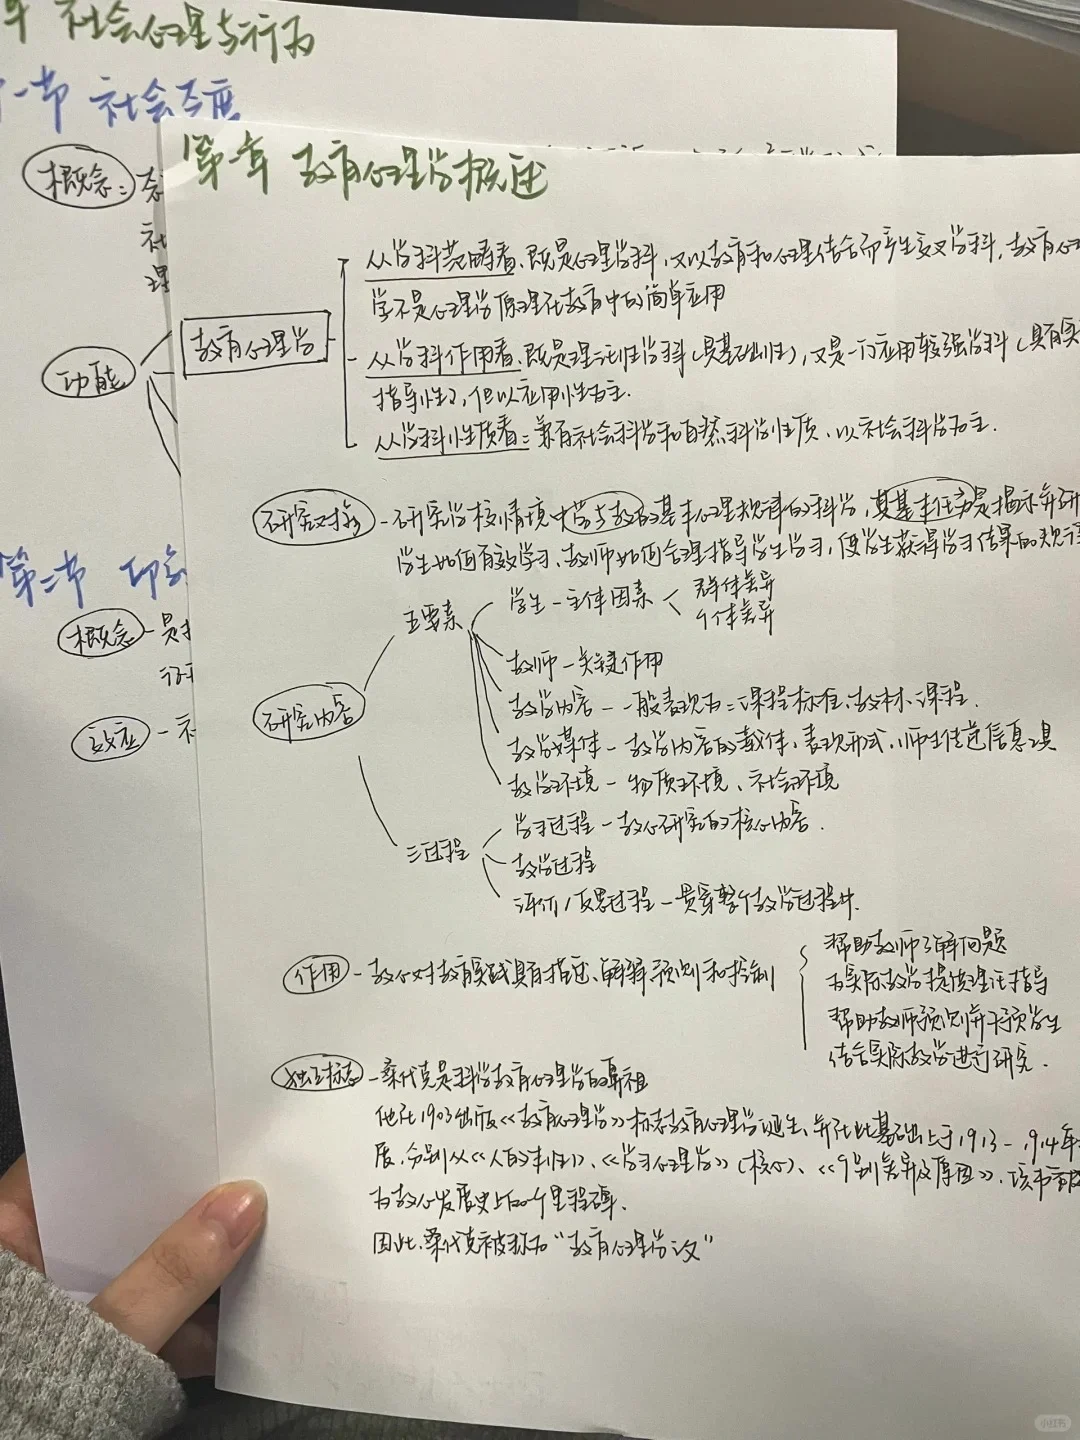 章 社会心理与行为
一节 社会态度
概念：态
社
理
功能
第二节 印象
概念
效应
第一章 教育心理学概述
教育心理学
从学科范畴看、既是心理学科，又以教育和心理结合而产生交叉学科，教育心
学不是心理学原理在教育中的简单应用
从学科作用看、既是理论性学科（具基础性），又是一门应用较强学科（具有实
指导性），但以应用性为主.
从学科性质看：兼有社会科学和自然科学性质、以社会科学为主.
研究对象 - 研究学校情境中学与教的基本心理规律的科学，其基本任务是揭示并研
学生如何有效学习、教师如何合理指导学生学习，使学生获得学习结果的规律
研究内容
五要素
学生 - 主体因素 < 群体差异
个体差异
教师 - 关键作用
教学内容 - 一般表现为：课程标准、教材、课程.
教学媒体 - 教学内容的载体、表现形式、师生传递信息工具
教学环境 - 物质环境、社会环境
三过程
学习过程 - 教心研究的核心内容.
教学过程
评价/反思过程 - 贯穿整个教学过程中.
作用 - 教心对教育实践具有描述、解释、预测和控制
帮助教师了解问题
为实际教学提供理论指导
帮助教师预测并干预学生
结合实际教学进行研究.
独立标志 - 桑代克是科学教育心理学的鼻祖
他在1903出版《教育心理学》标志教育心理学诞生、并在此基础上于1913-1914年
展，分别从《人的本性》、《学习心理学》（核心）、《个别差异及原因》、该书
为教心发展史上的一个里程碑.
因此、桑代克被称为“教育心理学之父”
小红书